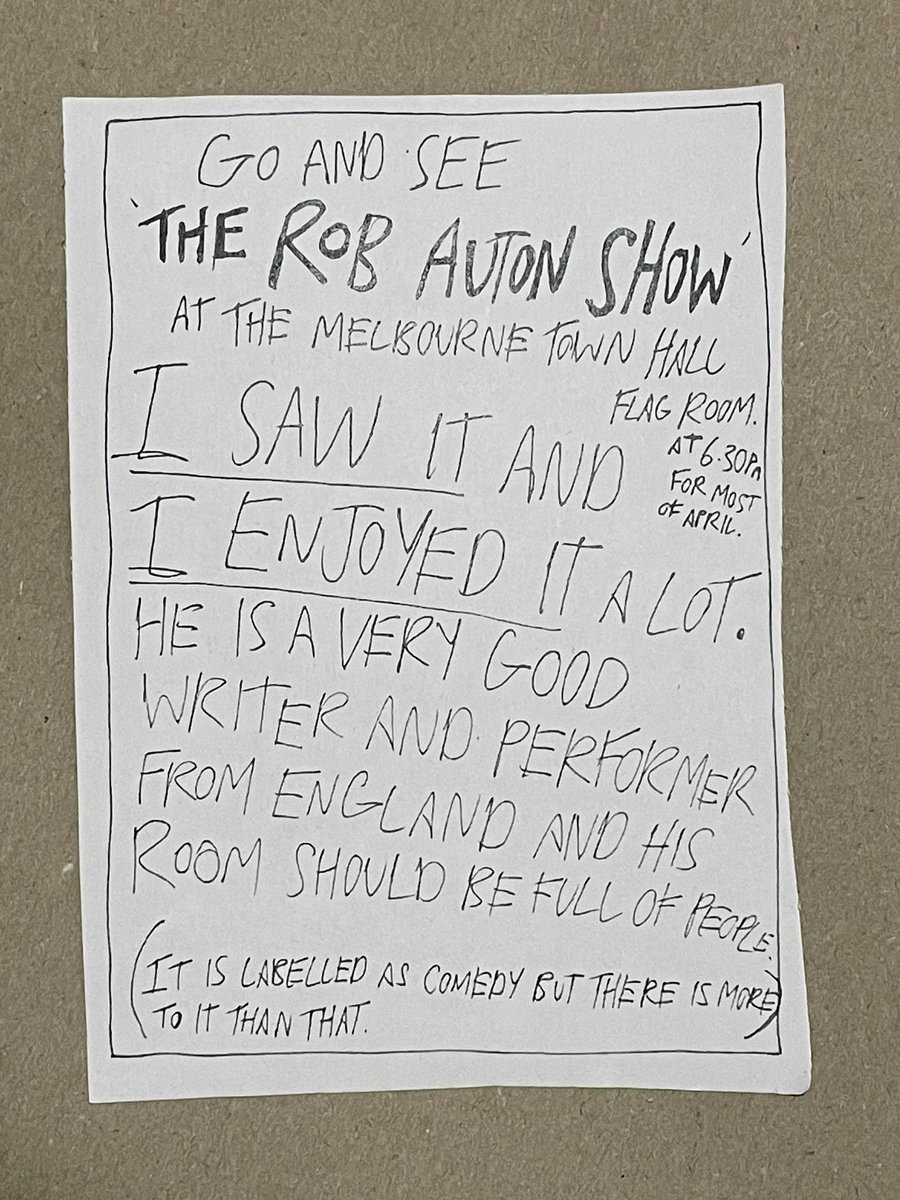 GO AND SEE
'THE ROB AUTON SHOW'
AT THE MELBOURNE TOWN HALL
FLAG ROOM.
AT 6.30PM
FOR MOST
OF APRIL.
I SAW IT AND
I ENJOYED IT A LOT.
HE IS A VERY GOOD
WRITER AND PERFORMER
FROM ENGLAND AND HIS
ROOM SHOULD BE FULL OF PEOPLE.
(IT IS LABELLED AS COMEDY BUT THERE IS MORE
TO IT THAN THAT.)